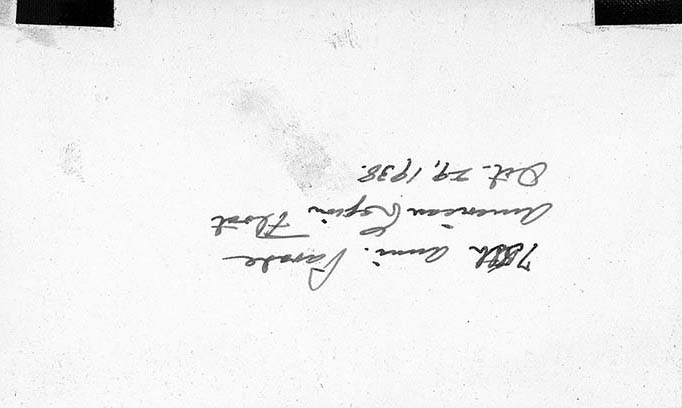 75th Anni. Parade
American Legion Float
Oct. 29, 1938.